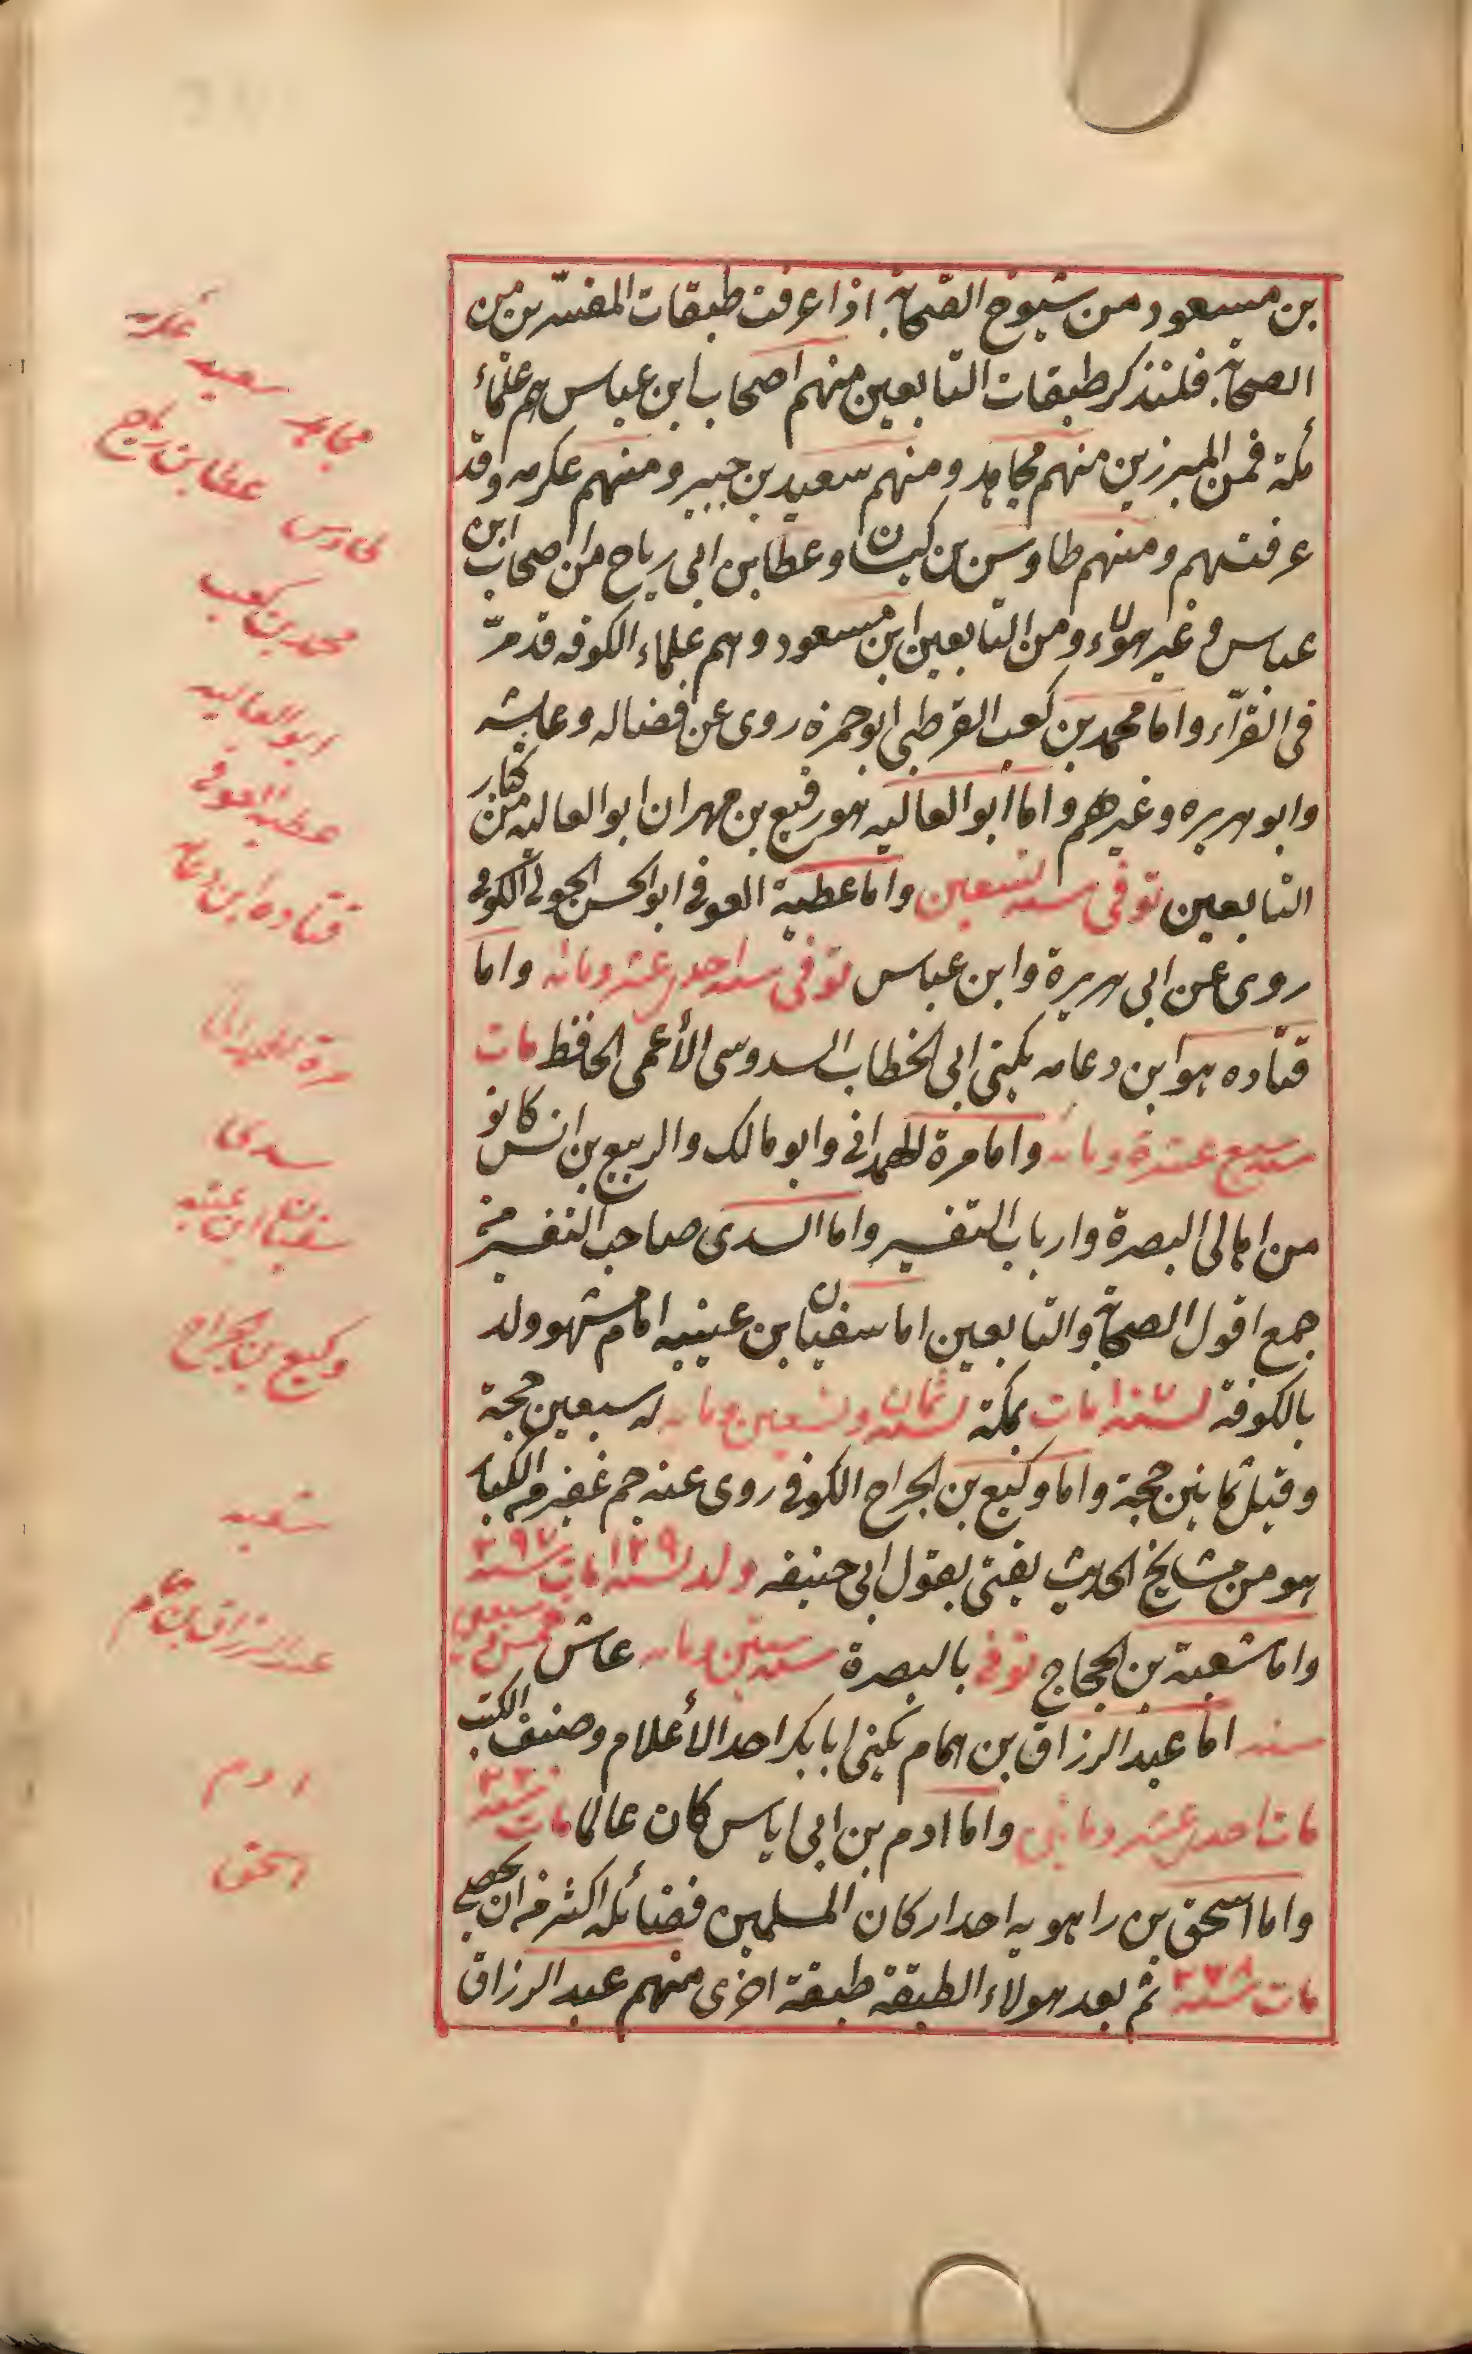 بن مسعود من شيوخ الصحابة اذا عرفت طبقات المفسّرين من
الصحابة فلنذكر طبقات التابعين منهم اصحاب ابن عباس هم علماء
مكة فمن المبرزين منهم مجاهد ومنهم سعيد بن جبير ومنهم عكرمه وقد
عرفتهم ومنهم طاوس بن كيسان وعطا بن ابي رباح من اصحاب ابن
عباس وغير هولاء ومن التابعين ابن مسعود وهم علماء الكوفه قد مرّ
في القرّاء واما محمد بن كعب القرطبي ابو حمزه روى عن فضاله وعايشه
وابو هريره وغيرهم واما ابو العاليه هو رفيع بن مهران ابو العاليه من كبار
التابعين توفي سنه تسعين واما عطية العوفي ابو الحسن الجولي الكوفي
روى عن ابي هريرة وابن عباس توفي سنه احدى عشر ومائه واما
قتاده هو ابن دعامه يكنى ابي الخطاب السدوسي الأعمى الحافظ مات
سنه سبع عشرة ومائه واما مرة الهمداني وابو مالك والربيع بن انس كانو
من اهالي البصرة وارباب التفسير واما السدي صاحب التفسير
جمع اقول الصحابة والتابعين اما سفيان بن عيينه امام مشهو ولد
بالكوفة لسنه مات بمكة لسنه ثمان وتسعين ومائه له سبعين حجة
وقيل ثمانين حجة واما وكيع بن الجراح الكوفي روى عنه جم غفير من الكبار
هو من مشايخ الحديث يفتي بقول ابي حنيفه ولد لسنه ١٢٩ مات سنه
واما شعبة بن الحجاج توفي بالبصرة سنه ستين ومائه عاش خمس وسبعين
سنه اما عبد الرزاق بن همام يكنى ابا بكر احد الأعلام وصنف الكتب
مات احدى عشر ومأتين واما ادم بن ابي اياس كان عالما مات سنه
واما اسحق بن راهويه احد اركان المسلمين فضائله اكثر من ان يحصى
مات سنه ٢٣٨ ثم بعد هولاء الطبقة طبقة اخرى منهم عبد الرزاق
مجاهد سعيد عكرمه
طاوس عطا بن رباح
محمد بن كعب
ابو العاليه
عطيه العوفي
قتاده ابن دعامه
مرة الهمداني
سدي
سفيان ابن عيينه
وكيع بن الجراح
شعبه
عبد الرزاق بن همام
ادم
اسحق